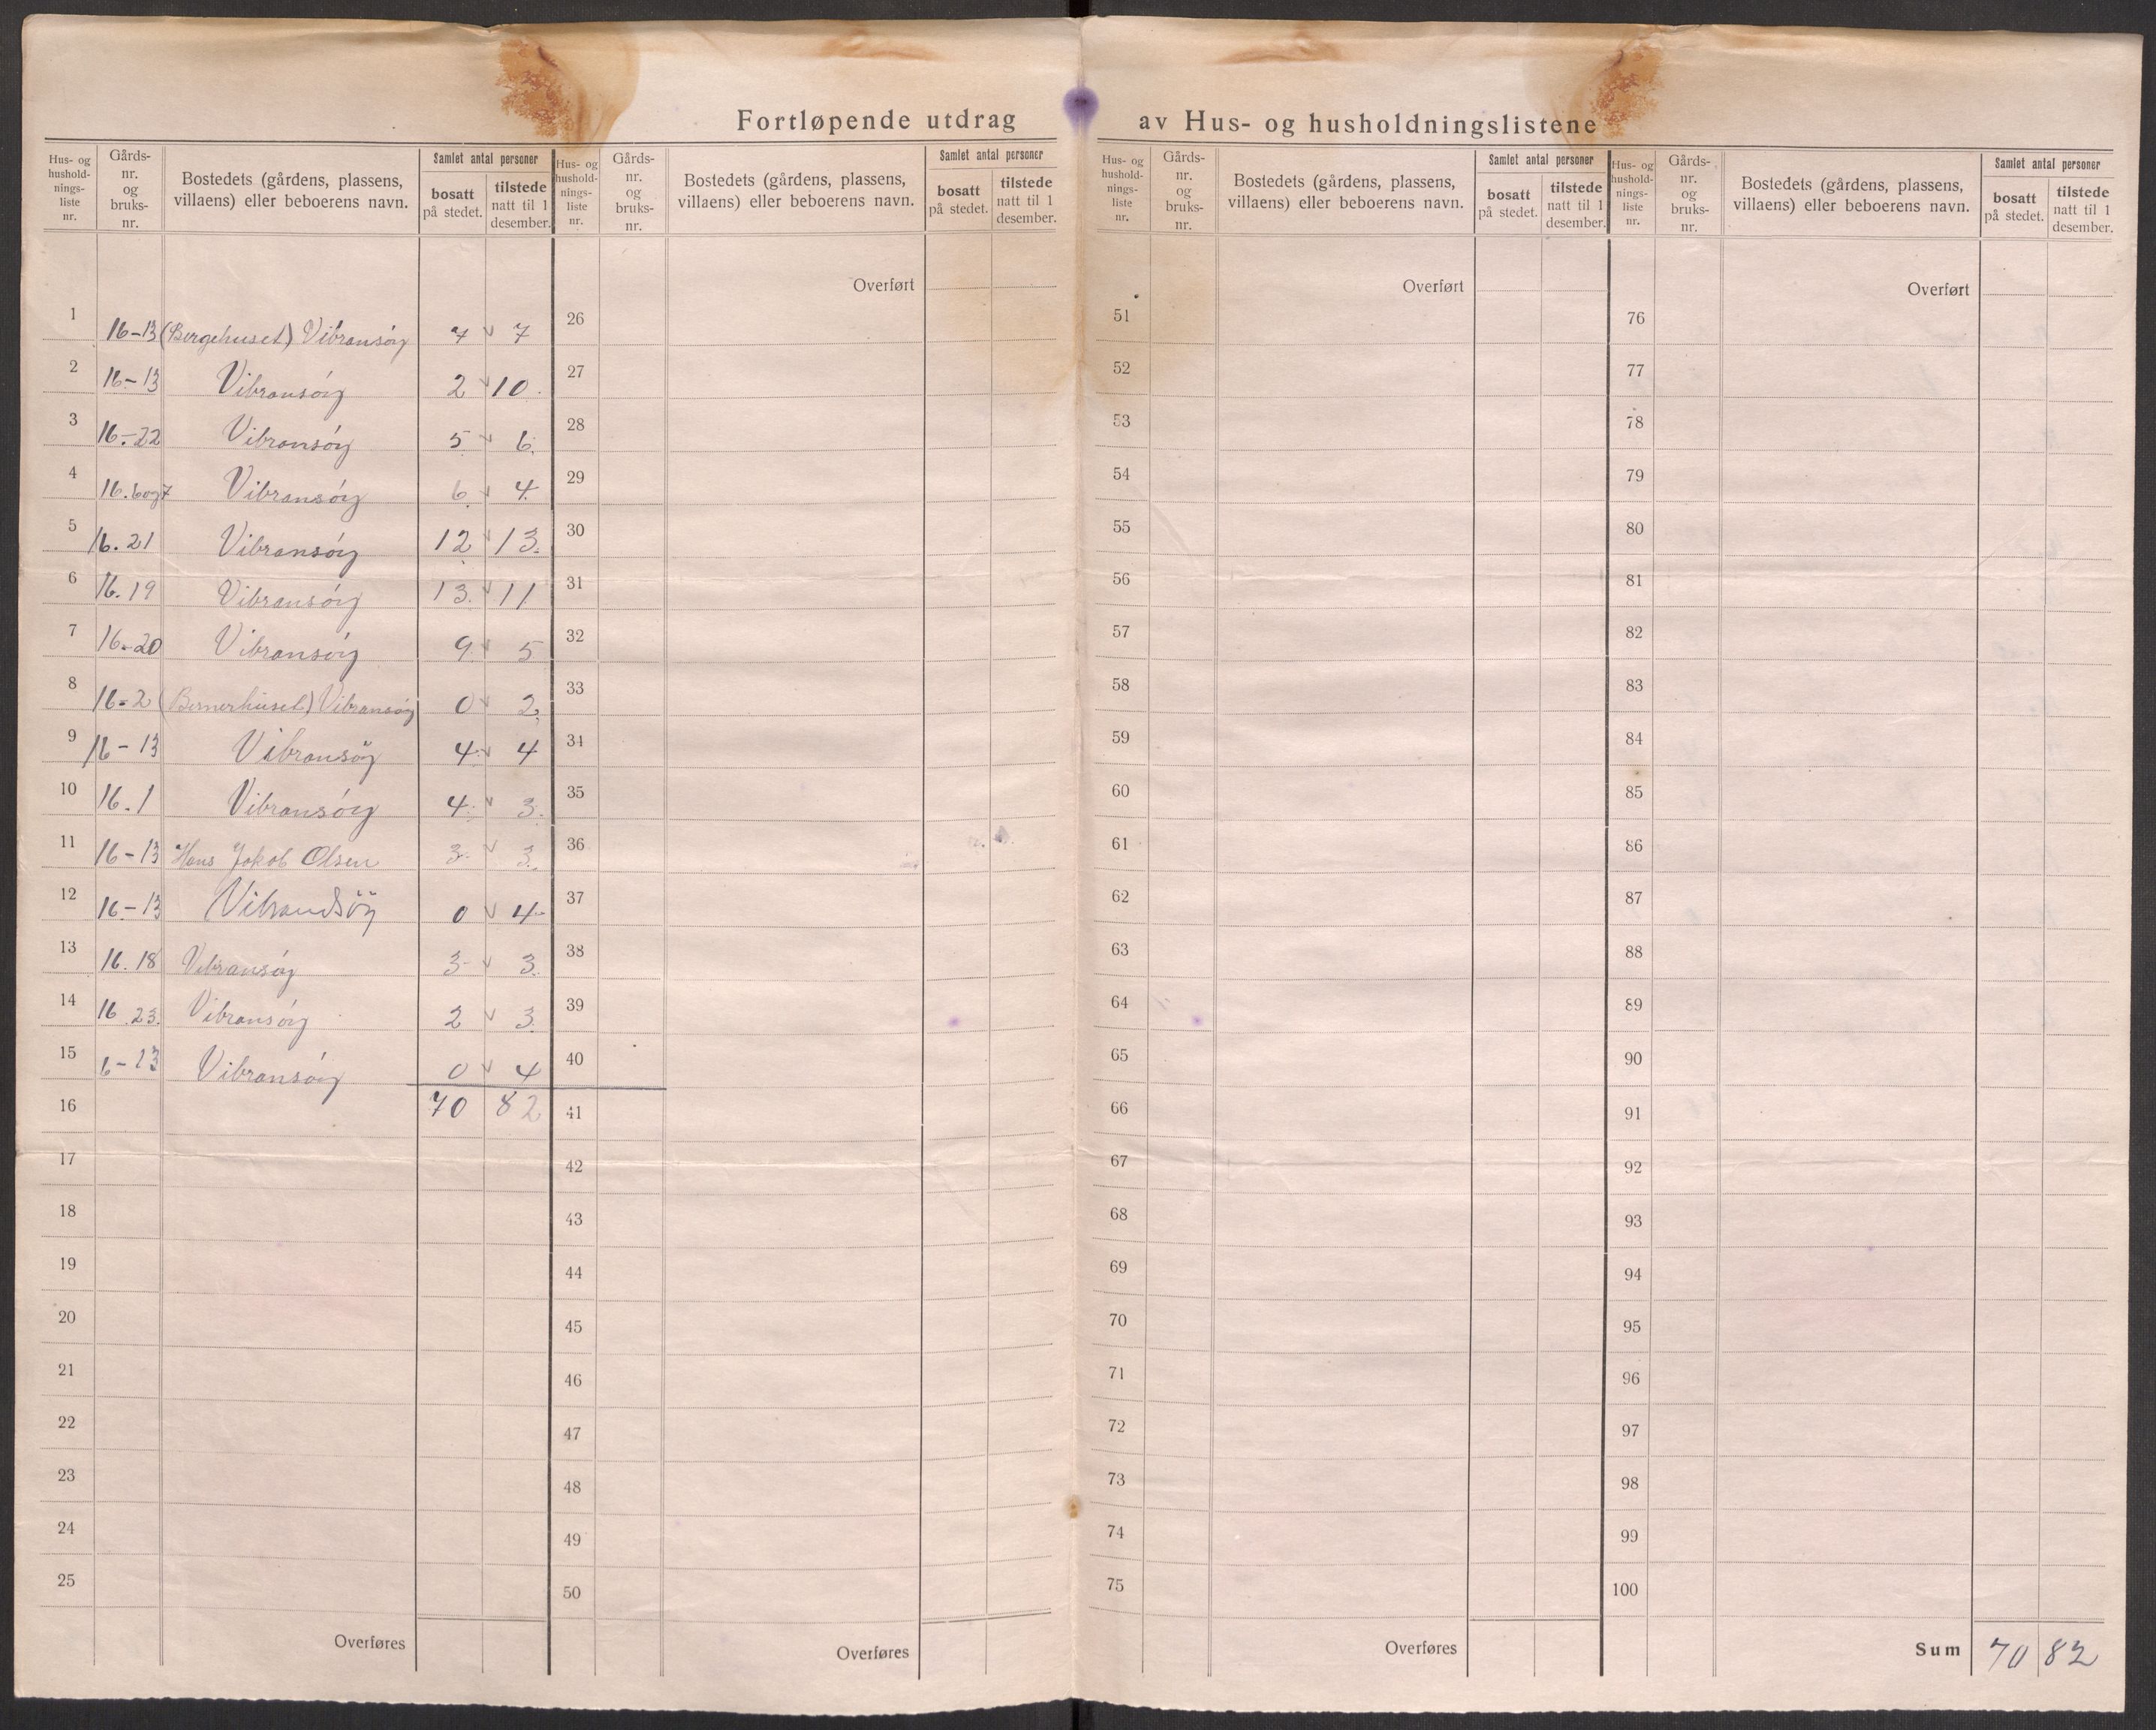 Fortløpende utdrag av Hus- og husholdningslistene
Hus- og husholdningsliste nr. Gårds-nr. og bruks-nr. Bostedets (gårdens, plassens, villaens) eller beboerens navn. Samlet antal personer bosatt på stedet. tilstede natt til 1 desember.
Hus- og husholdningsliste nr. Gårds-nr. og bruks-nr. Bostedets (gårdens, plassens, villaens) eller beboerens navn. Samlet antal personer bosatt på stedet. tilstede natt til 1 desember.
Hus- og husholdningsliste nr. Gårds-nr. og bruks-nr. Bostedets (gårdens, plassens, villaens) eller beboerens navn. Samlet antal personer bosatt på stedet. tilstede natt til 1 desember.
Hus- og husholdningsliste nr. Gårds-nr. og bruks-nr. Bostedets (gårdens, plassens, villaens) eller beboerens navn. Samlet antal personer bosatt på stedet. tilstede natt til 1 desember.
1 16-13 (Bergehuset) Vibransöy 7 v 7
2 16-13 Vibransöy 2 v 10
3 16-22 Vibransöy 5 v 6
4 16.6og7 Vibransöy 6 v 4
5 16.21 Vibransöy 12 v 13
6 16.19 Vibransöy 13 v 11
7 16-20 Vibransöy 9 v 5
8 16-2 (Bernerhuset) Vibransöy 0 v 2
9 16-13 Vibransöy 4 v 4
10 16.1 Vibransöy 4 v 3
11 16-13 Hans Jakob Olsen 3 v 3
12 16-13 Vibrandsöy 0 v 4
13 16.18 Vibransöy 3 v 3
14 16 23 Vibransöy 2 v 3
15 6-13 Vibransöy 0 v 4
16 70 82
17
18
19
20
21
22
23
24
25
Overføres
Overført
26
27
28
29
30
31
32
33
34
35
36
37
38
39
40
41
42
43
44
45
46
47
48
49
50
Overføres
Overført
51
52
53
54
55
56
57
58
59
60
61
62
63
64
65
66
67
68
69
70
71
72
73
74
75
Overføres
Overført
76
77
78
79
80
81
82
83
84
85
86
87
88
89
90
91
92
93
94
95
96
97
98
99
100
Sum 70 82